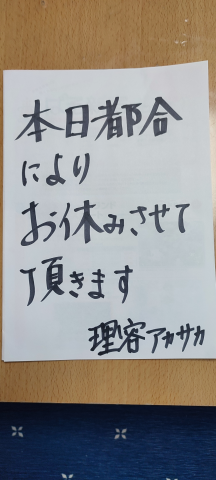 本日都合
により
お休みさせて
頂きます
理容アカサカ